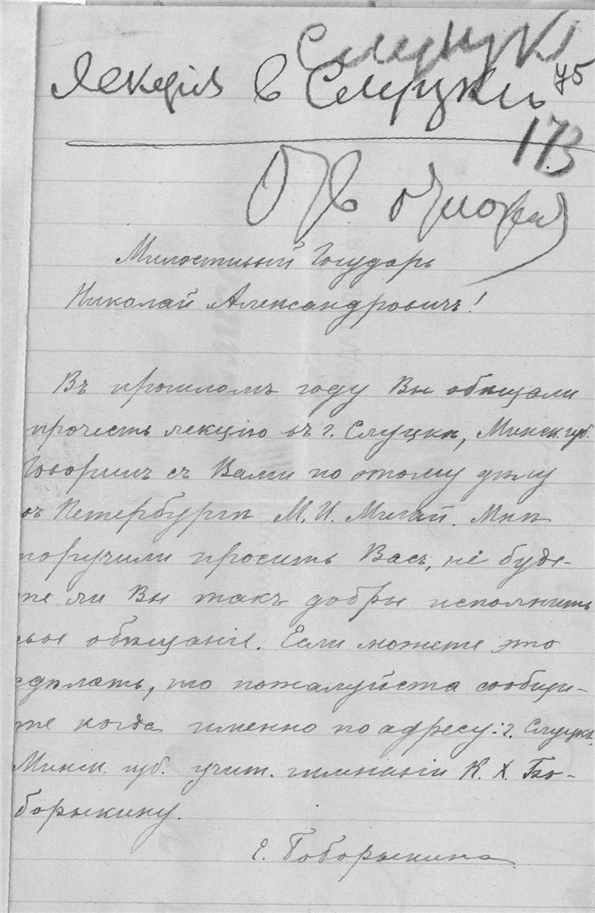 Слуцкъ
Лекція в Слуцкѣ 75
173
Милостивый Государь
Николай Александровичъ!
Въ прошломъ году Вы обѣщали
прочесть лекцію въ г. Слуцкѣ, Минск. губ.
Говорилъ съ Вами по этому дѣлу
въ Петербургѣ М. И. Мнѣ
поручили просить Васъ, не буде-
те ли Вы такъ добры исполнить
свое обѣщаніе. Если можете это
сдѣлать, то пожалуйста сообщи-
те когда именно по адресу: г. Слуцкъ
Минск. губ. учит. гимназіи К. Х. Бо-
борыкину.
Е. Боборыкина